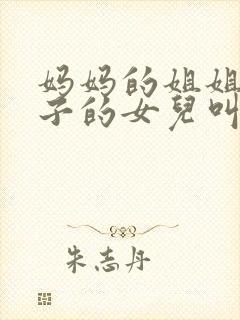 妈妈的姐姐
子的女兒叫
朱志丹